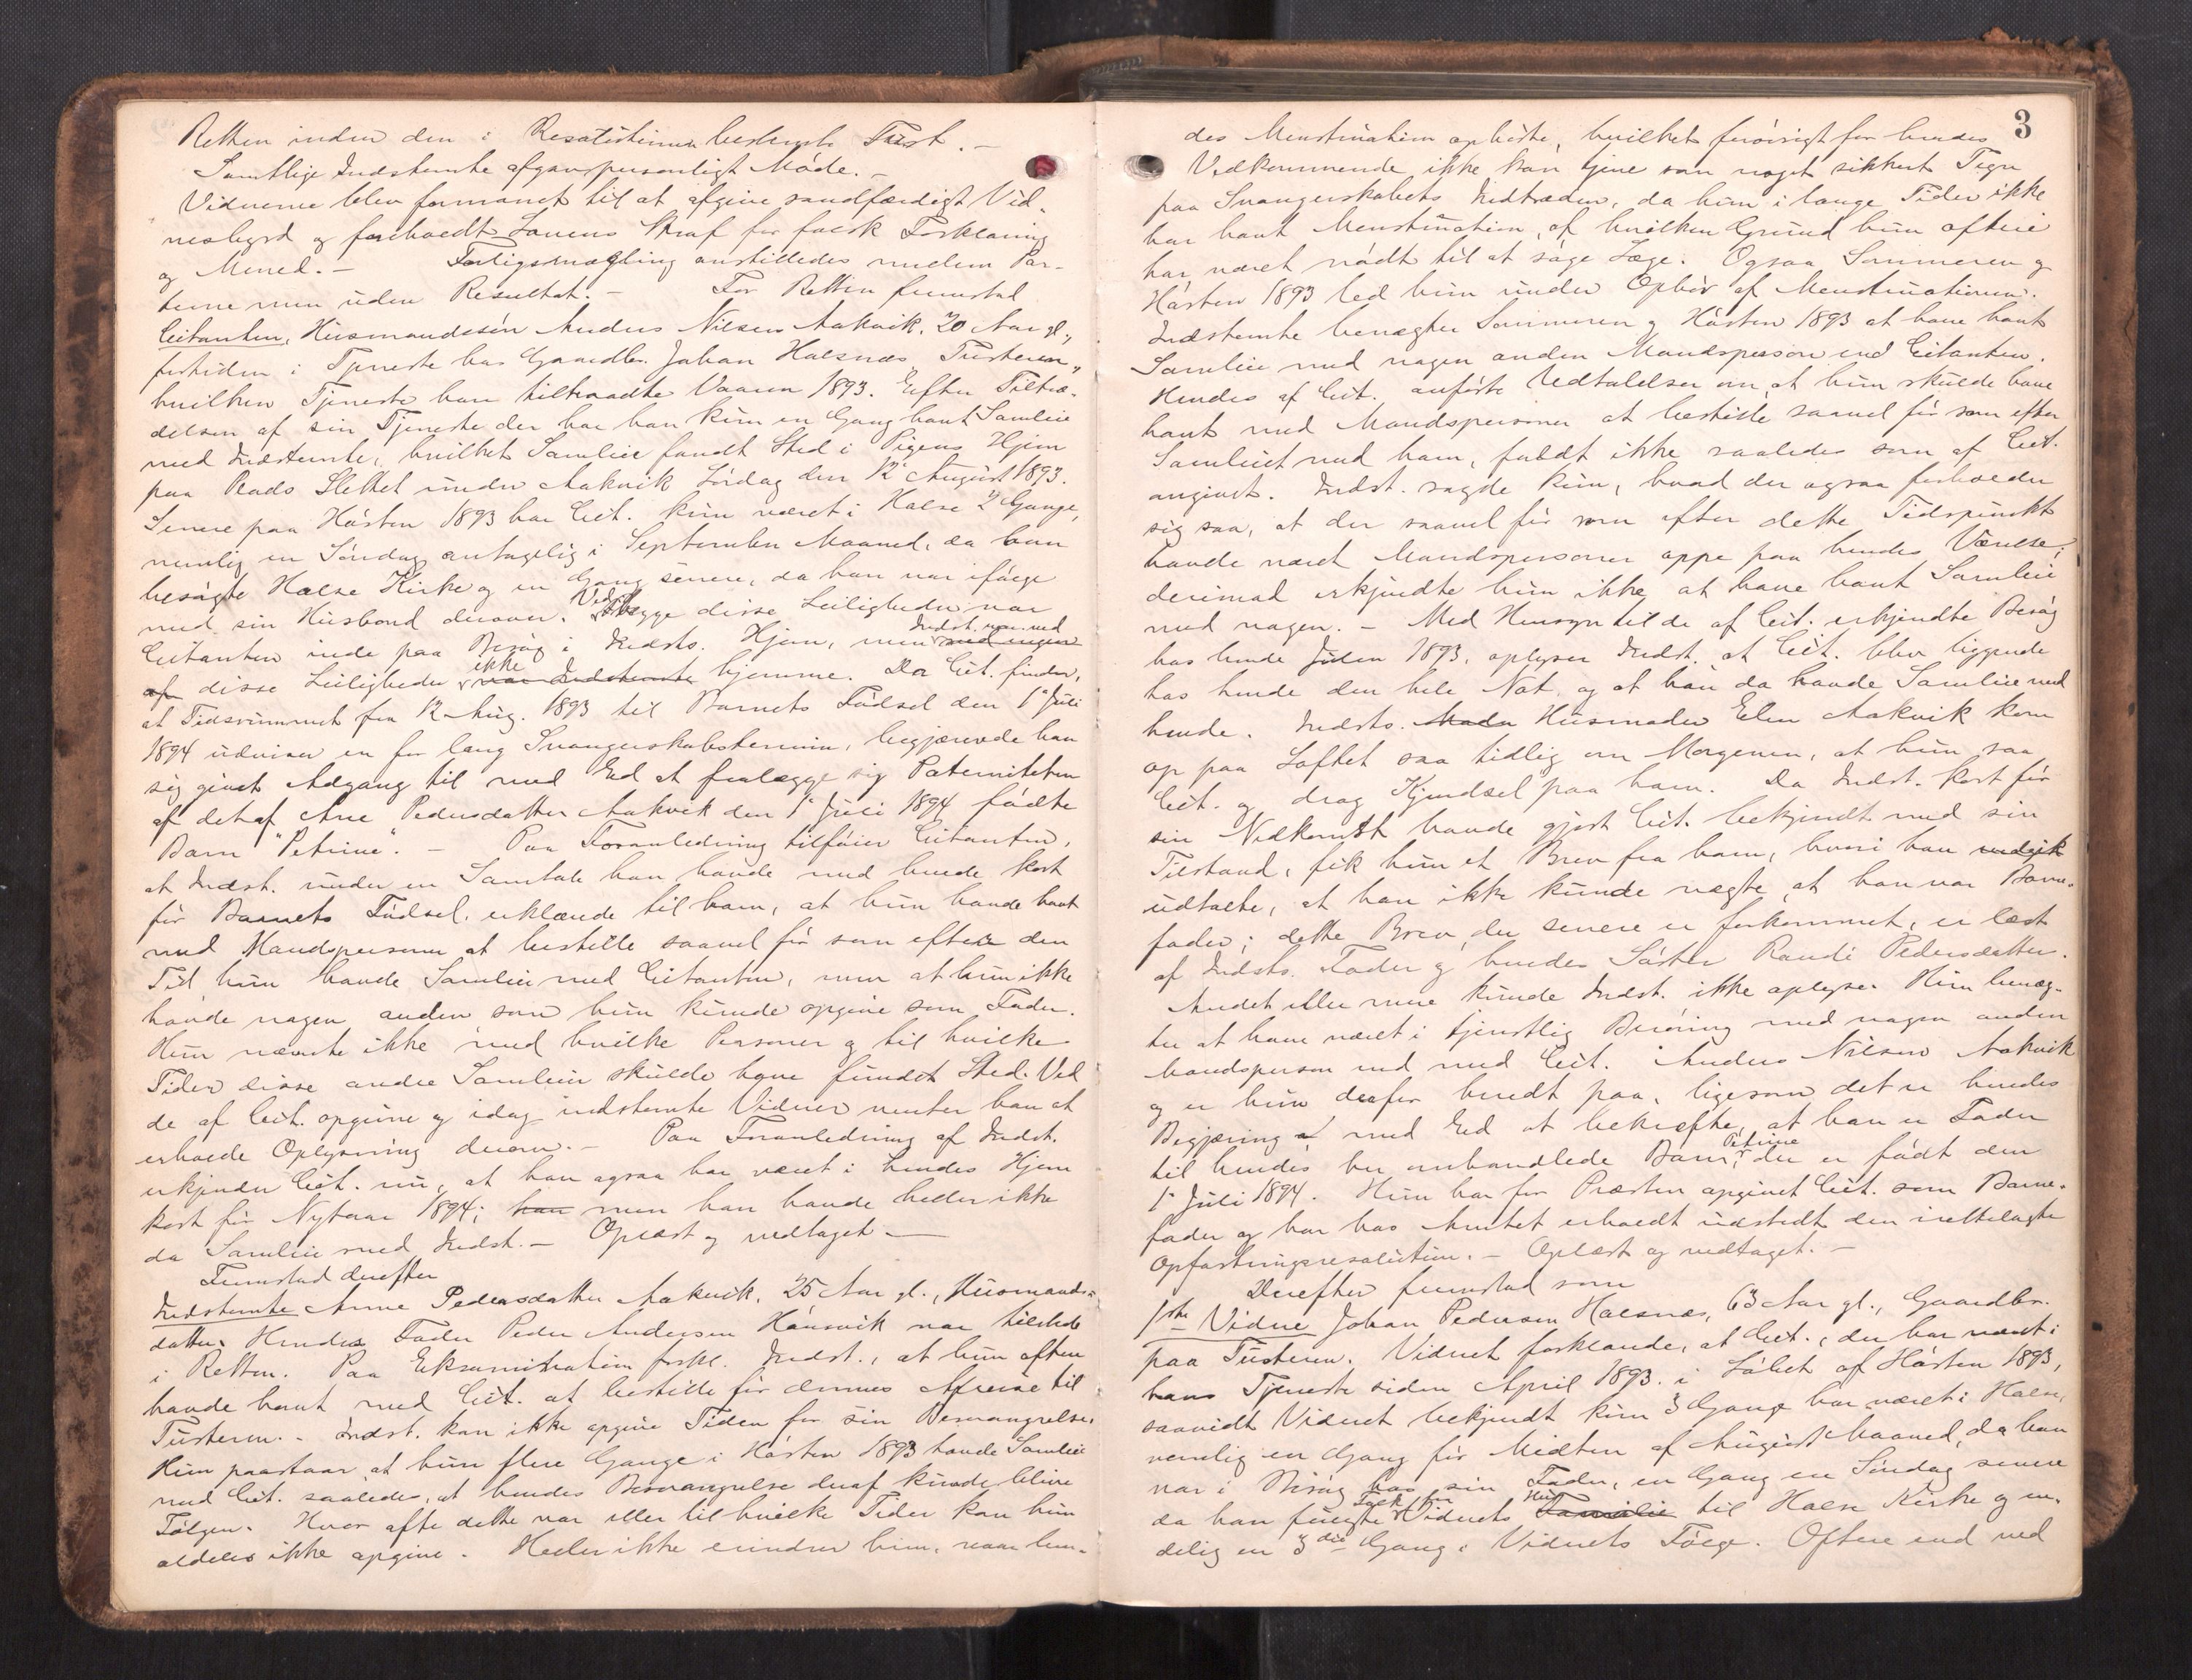 Retten inden den i Resolutionen bestemte Frist. –
Samtlige Indstemte afgav personligt Møde. –
Vidnerne blev formanet til at afgive sandfærdigt Vid-
nesbyrd og foreholdt Lovens Straf for falsk Forklaring
og Mened. – Forligsmægling anstilledes mellem Par-
terne men uden Resultat. – For Retten fremstod
Citanten, Husmandssøn Anders Nilsen Aakvik, 20 Aar gl.,
fortiden i Tjeneste hos Gaardbr. Johan Halsnæs Tusteren,
hvilken Tjeneste han tiltraadte Vaaren 1893. Efter Tiltræ-
delsen af sin Tjeneste der har han kun en Gang havt Samleie
med Indstemte, hvilket Samleie fandt Sted i Pigens Hjem
paa Plads Slettet under Aakvik Lørdag den 12te August 1893.
Senere paa Høsten 1893 har Cit. kun været i Halse 2 Gange,
nemlig en Søndag antagelig i September Maaned, da han
besøgte Halse Kirke og en Gang senere, da han var ifølge
med sin Husbond derover. Ved begge disse Leiligheder var
Citanten inde paa Besøg i Indsts. Hjem, men Indst. var ved ~~ved ingen~~
~~af~~ disse Leiligheder ikke ~~var Indstemte~~ hjemme. Da Cit. finder,
at Tidsrummet fra 12 Aug. 1893 til Barnets Fødsel den 1ste Juli
1894 udviser en for lang Svangerskabstermin, begjærede han
sig givet Adgang til med Ed at fralægge sig Paterniteten
af det af Ane Pedersdatter Aakvik den 1ste Juli 1894 fødte
Barn "Petrine". – Paa Foranledning tilføier Citanten,
at Indst. under en Samtale han havde med hende kort
før Barnets Fødsel, erklærede til ham, at hun havde havt
med Mandspersoner at bestille saavel før som efter den
Tid hun havde Samleie med Citanten, men at hun ikke
havde nogen anden som hun kunde opgive som Fader.
Hun nævnte ikke med hvilke Personer og til hvilke
Tider disse andre Samleier skulde have fundet Sted. Ved
de af Cit. opgivne og idag indstemte Vidner venter han at
erholde Oplysning derom. – Paa Foranledning af Indst.
erkjender Cit. nu, at han ogsaa har været i hendes Hjem
kort før Nytaar 1894; ~~han~~ men han havde heller ikke
da Samleie med Indst. – Oplæst og vedtaget. –
Fremstod derefter
Indstemte Anne Pedersdatter Aakvik, 25 Aar gl., Husmands-
datter. Hendes Fader Peder Andersen Hånsvik var tilstede
i Retten. Paa Eksamination forkl. Indst., at hun ofte
havde havt med Cit. at bestille før dennes Afreise til
Tusteren. – Indst. kan ikke opgive Tiden for sin Besvangrelse.
Hun paastaar, at hun flere Gange i Høsten 1893 havde Samleie
med Cit. saaledes, at hendes Besvangrelse deraf kunde blive
Følgen. Hvor ofte dette var eller til hvilke Tider kan hun
aldeles ikke opgive. Heller ikke erindrer hun, naar hen-
3
des Menstruation ophørte, hvilket forøvrigt for hendes
Vedkommende ikke kan tjene som noget sikkert Tegn
paa Svangerskabets Indtræden, da hun i lange Tider ikke
har havt Menstruation, af hvilken Grund hun oftere
har været nødt til at søge Læge. Ogsaa Sommeren og
Høsten 1893 led hun under Ophør af Menstruationen.
Indstemte benægter Sommeren og Høsten 1893 at have havt
Samleie med nogen anden Mandsperson end Citanten.
Hendes af Cit. anførte Udtalelser om, at hun skulde have
havt med Mandspersoner at bestille saavel før som efter
Samleiet med ham, faldt ikke saaledes som af Cit.
angivet. Indst. sagde kun, hvad der ogsaa forholder
sig saa, at der saavel før som efter dette Tidspunkt
havde været Mandspersoner oppe paa hendes Værelse;
derimod erkjendte hun ikke at have havt Samleie
med nogen. – Med Hensyn til de af Cit. erkjendte Besøg
hos hende Julen 1893, oplyser Indst. at Cit. blev liggende
hos hende den hele Nat, og at han da havde Samleie med
hende. Indsts. ~~Moder~~ Husmoder Elen Aakvik kom
op paa Loftet saa tidlig om Morgenen, at hun saa
Cit. og drog Kjendsel paa ham. Da Indst. kort før
sin Nedkomst havde gjort Cit. bekjendt med sin
Tilstand, fik hun et Brev fra ham, hvori han ~~vedgik~~
udtalte, at han ikke kunde nægte, at han var Barne-
fader; dette Brev, der senere er forkommet, er læst
af Indsts. Fader og hendes Søster Randi Pedersdatter.
Andet eller mere kunde Indst. ikke oplyse. Hun benæg-
ter at have været i kjønslig Berøring med nogen anden
Mandsperson end med Cit. Anders Nilsen Aakvik
og er hun derfor beredt paa, ligesom det er hendes
Begjæring at med Ed at bekræfte, at han er Fader
til hendes her omhandlede Barn, Petrine der er født den
1ste Juli 1894. Hun har for Præsten opgivet Cit. som Barne-
fader og har hos Amtet erholdt udstedt den irettelagte
Opfostringsresolution. – Oplæst og vedtaget. –
Derefter fremstod som
1ste Vidne Johan Pedersen Halsnæs, 63 Aar gl., Gaardbr.
paa Tusteren. Vidnet forklarede, at Cit., der har været i
hans Tjeneste siden April 1893, i Løbet af Høsten 1893,
saavidt Vidnet bekjendt kun 3 Gange har været i Halse,
nemlig en Gang før Midten af August Maaned, da han
var i Besøg hos sin Fader, en Gang en Søndag senere
da han fulgte Folk fra Vidnets Hus ~~Familie~~ til Halse Kirke og en-
delig en 3die Gang i Vidnets Følge. Oftere end ved